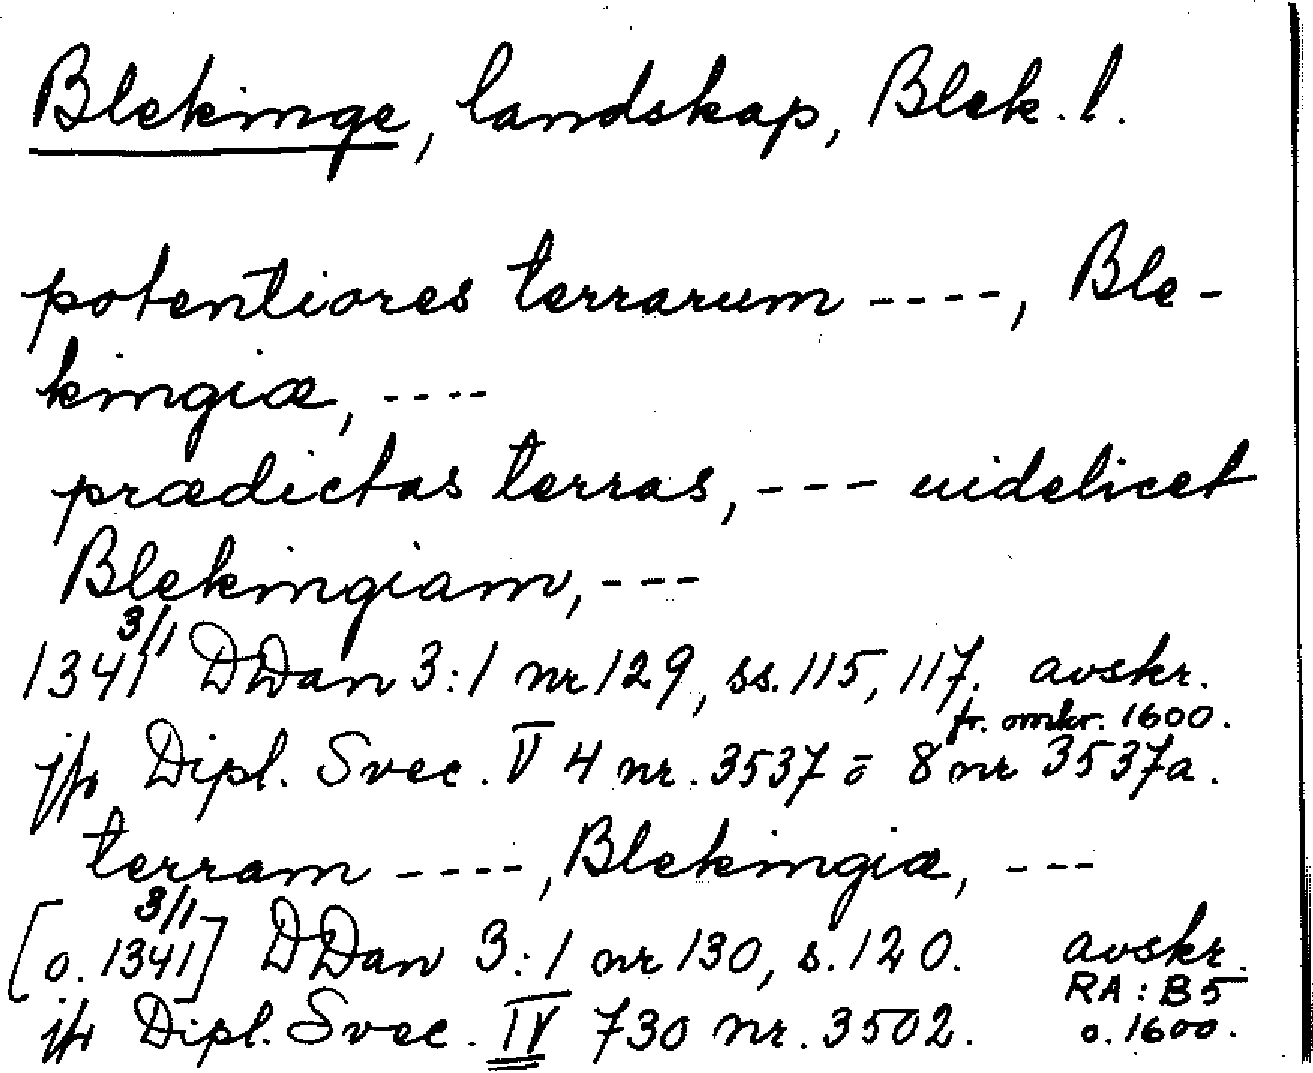 Blekinge, landskap, Blek. l.
potentiores terrarum ----, Ble-
kingiæ, ----
prædictas terras, --- uidelicet
Blekingiam, ---
1341 3/1 DDan 3:1 nr 129, ss. 115, 117. avskr.
fr. omkr. 1600.
jfr Dipl. Svec. V 4 nr. 3537 o 8 nr 3537a.
terram ----, Blekingiæ, ---
[o. 1341 3/1] DDan 3:1 nr 130, s. 120. avskr.
RA: B5
jfr Dipl. Svec. IV 730 nr. 3502. o. 1600.